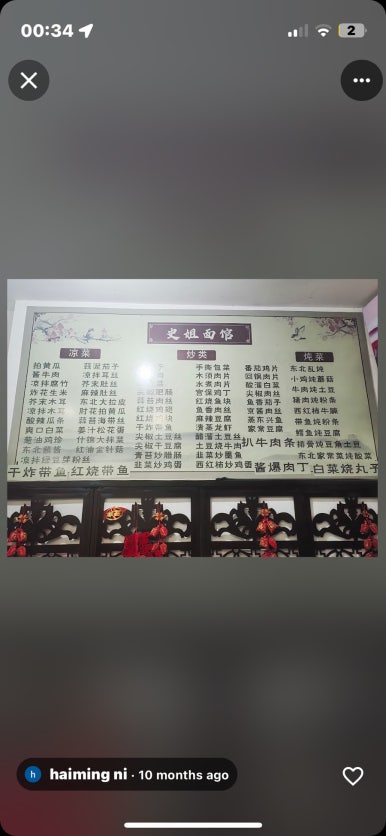 00:34
2
史姐面馆
凉菜
炒类
炖菜
拍黄瓜
酱牛肉
凉拌腐竹
炸花生米
芥末木耳
凉拌木耳
酸辣瓜条
爽口白菜
葱油鸡珍
东北酱
凉拌绿豆芽粉丝
蒜泥茄子
凉拌耳丝
芥末肚丝
麻辣肚丝
东北大拉皮
肘花拍黄瓜
蒜苔海带丝
姜汁松花蛋
什锦大拌菜
红油金针菇
尖椒肥肠
蒜苔肉丝
红烧鸡翅
红烧
干炸带鱼
尖椒土豆丝
尖椒干豆腐
青苔炒腊肠
韭菜炒鸡蛋
手撕包菜
木须肉片
水煮肉片
宫保鸡丁
红烧鱼块
鱼香肉丝
麻辣豆腐
清蒸龙虾
醋溜土豆丝
土豆烧牛肉
韭菜炒墨鱼
西红柿炒鸡蛋
番茄鸡片
回锅肉片
酸溜白菜
尖椒肉丝
鱼香茄子
京酱肉丝
蒸东兴鱼
家常豆腐
扒牛肉条
东北乱炖
小鸡炖蘑菇
牛肉炖土豆
猪肉炖粉条
西红柿牛腩
带鱼炖粉条
鲶鱼炖豆腐
排骨炖豆角土豆
东北家常炖酸菜
干炸带鱼.红烧带鱼
酱爆肉丁.白菜烧丸子
h
haiming ni · 10 months ago